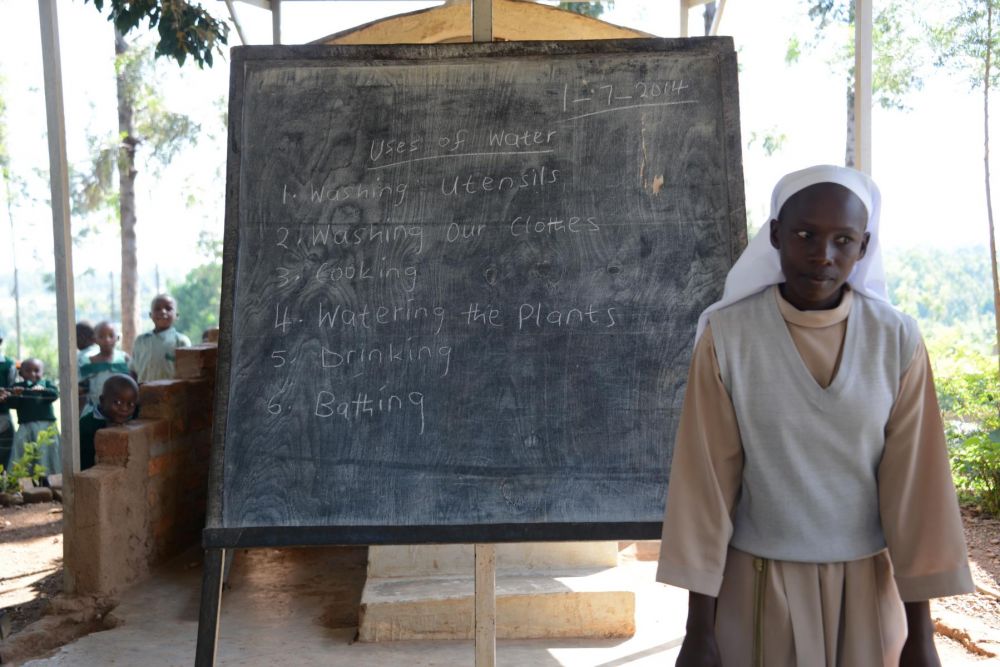 1-7-2014
Uses of Water
1. Washing Utensils
2. Washing Our Clothes
3. Cooking
4. Watering the Plants
5. Drinking
6. Bathing